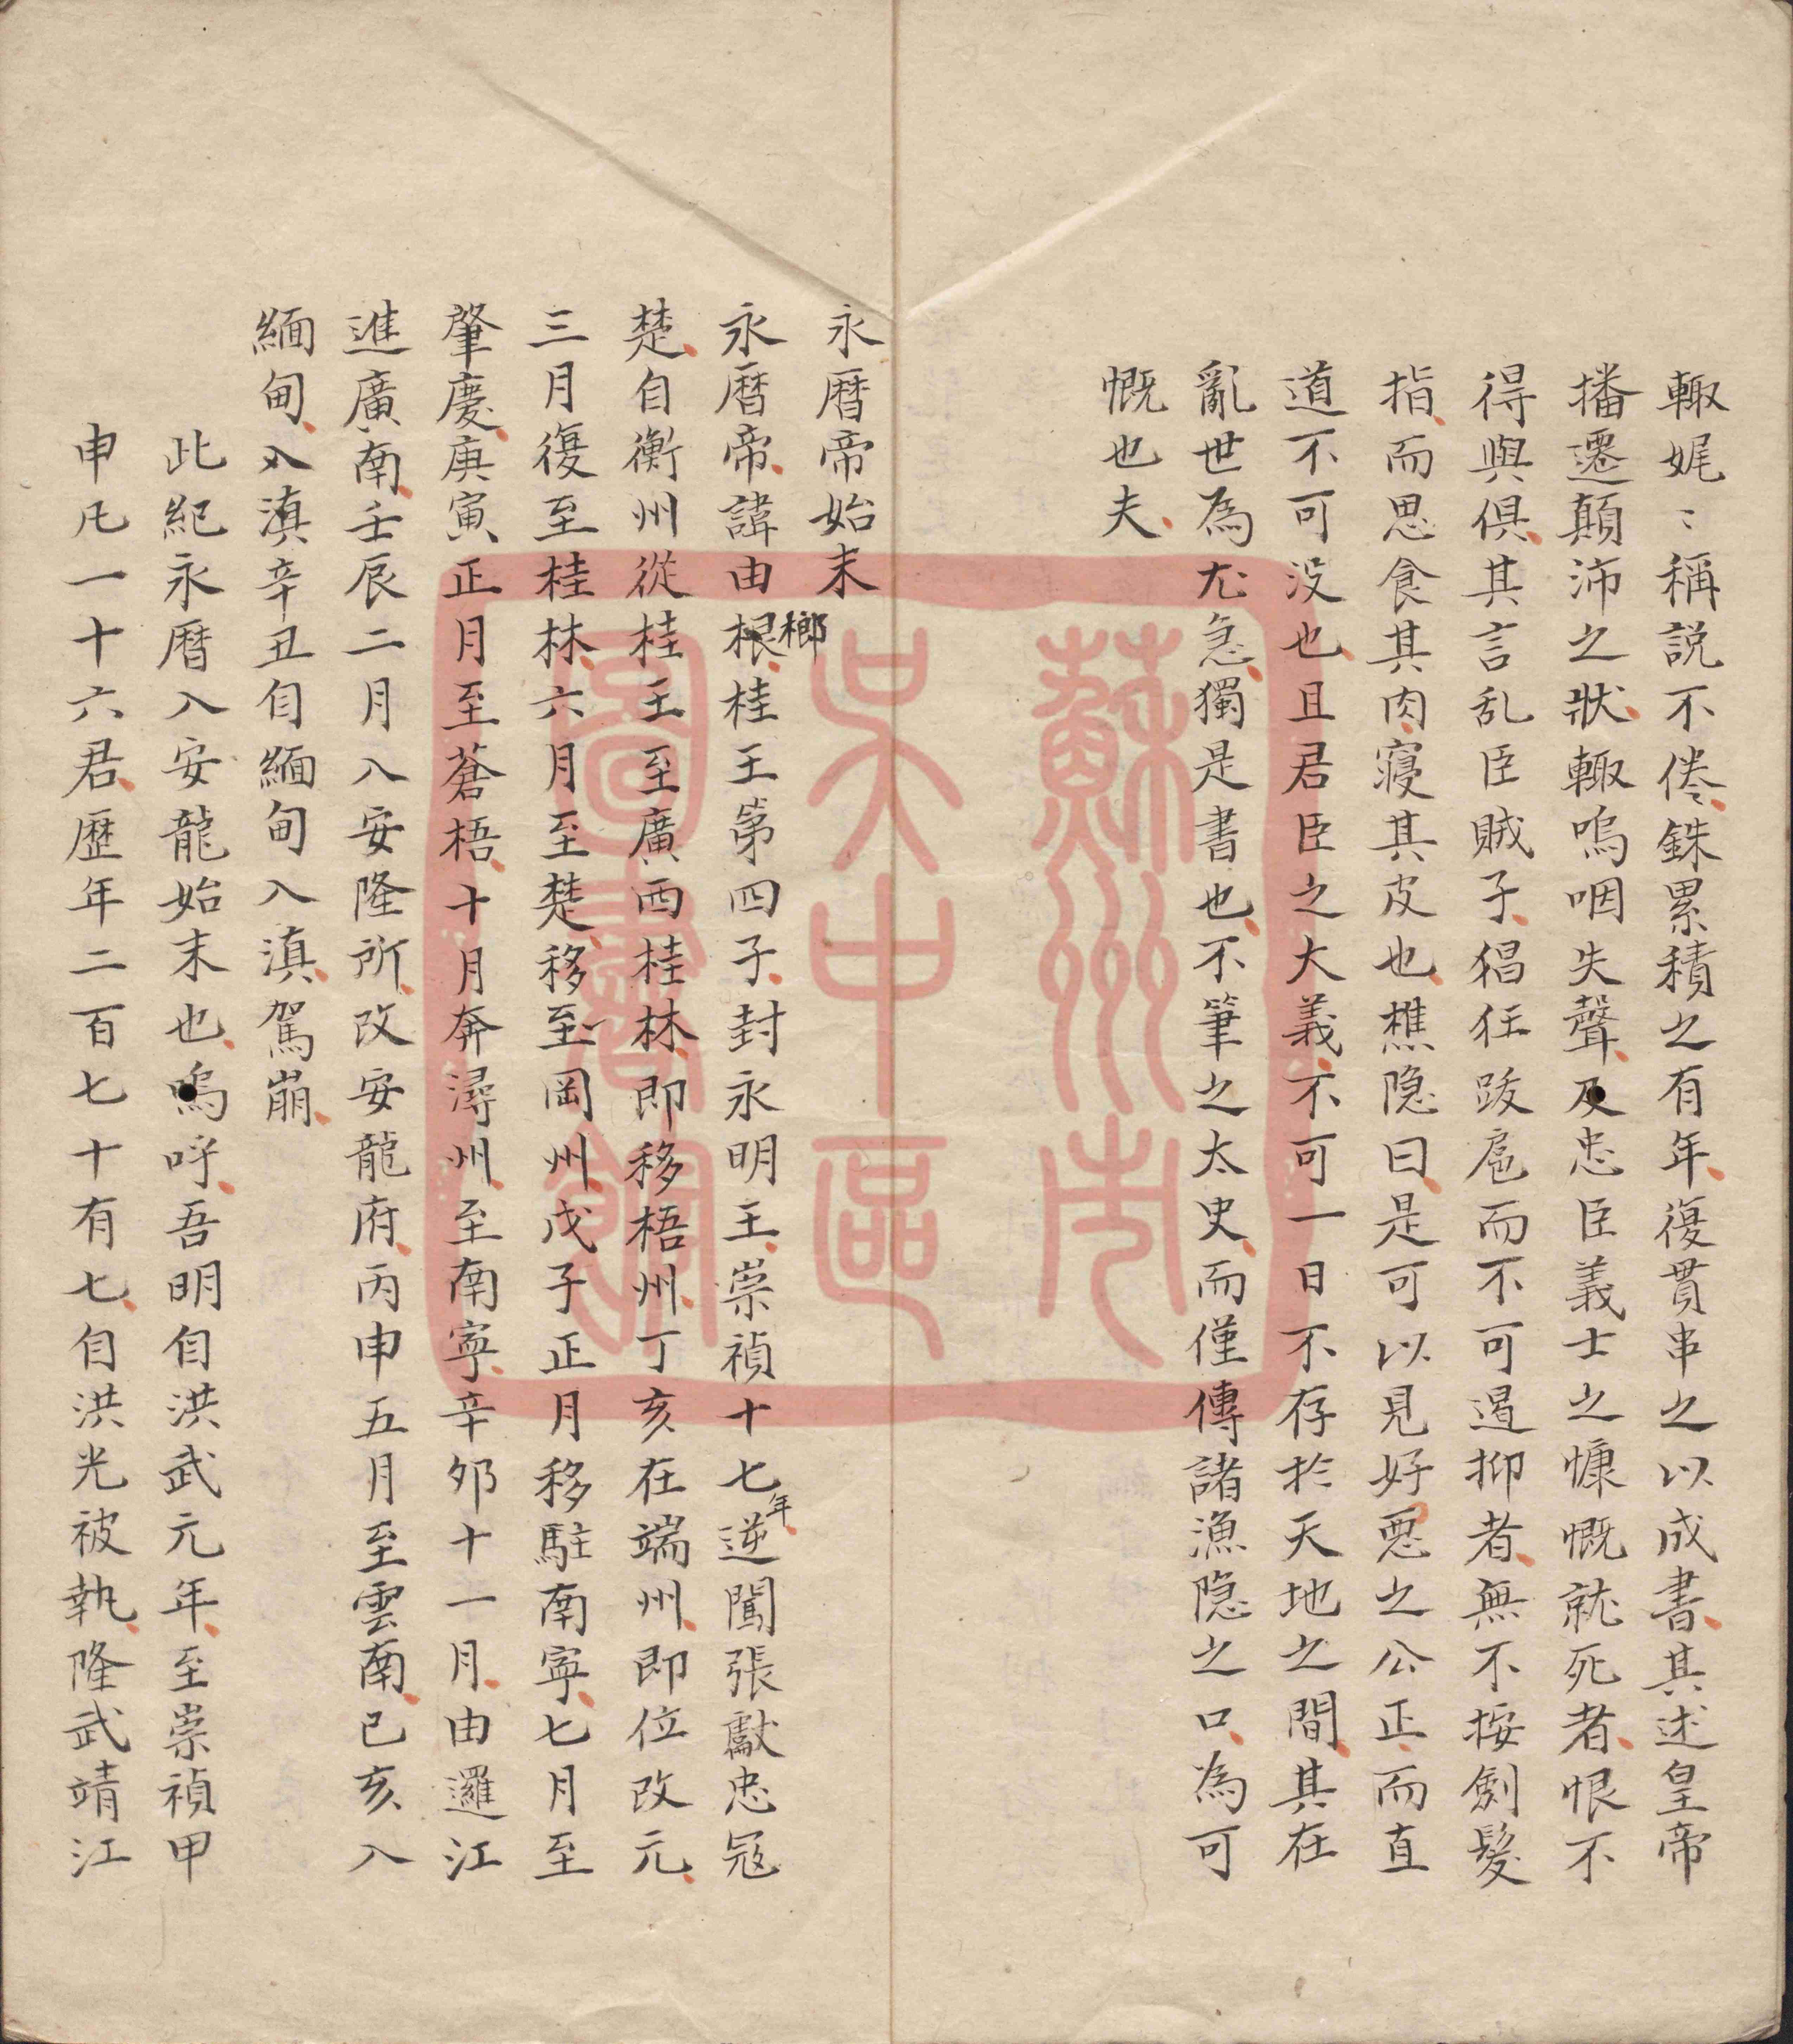 輙娓〻稱説不倦銖累積之有年復貫串之以成書其述皇帝
播遷顛沛之狀輙嗚咽失聲及忠臣義士之慷慨就死者恨不
得與俱其言乱臣賊子猖狂跋扈而不可遏抑者無不按劍髮
指而思食其肉寢其皮也樵隐曰是可以見好惡之公正而直
道不可没也且君臣之大義不可一日不存扵天地之間其在
亂世為尤急獨是書也不筆之太史而僅傳諸漁隐之口為可
慨也夫
永曆帝始末
永曆帝諱由根榔桂王第四子封永明王崇禎十七年逆闖張獻忠冦
楚自衡州從桂王至廣西桂林即移梧州丁亥在端州即位改元
三月復至桂林六月至楚移至岡州戊子正月移駐南寧七月至
肇慶庚寅正月至蒼梧十月奔潯州至南寧辛夘十一月由邏江
進廣南壬辰二月入安隆所改安龍府丙申五月至雲南己亥入
緬甸入滇辛丑自緬甸入滇駕崩
此紀永曆入安龍始末也嗚呼吾明自洪武元年至崇禎甲
申凡一十六君歷年二百七十有七自洪光被執隆武靖江
蘇州市
吳中區
圖書館